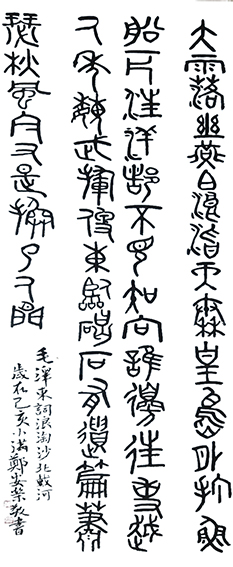 大雨落幽燕白浪滔天秦皇島外打魚
船一片汪洋都不見知向誰邊往事越
千年魏武揮鞭東臨碣石有遺篇蕭
瑟秋風今又是換了人間
毛澤東詞浪淘沙北戴河
歲在己亥小滿鄭安敬書